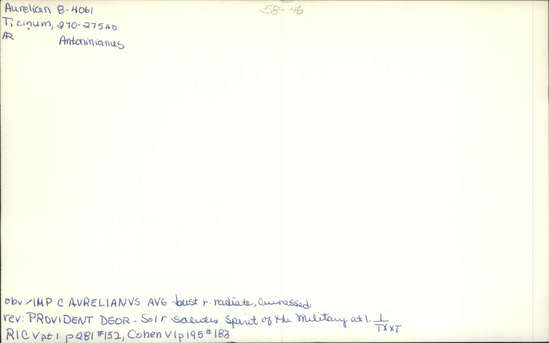 Aurelian B-4061
58-46
Ticinum, 270-275 AD
AR Antoninianus
obv/IMP C AVRELIANVS AVG bust r. radiate, cuirassed
rev: PROVIDENT DEOR - Sol r salutes Spirit of the Military at l. 1/TXXT
RIC V pt. 1 p 281 #152, Cohen VI p 195 #183